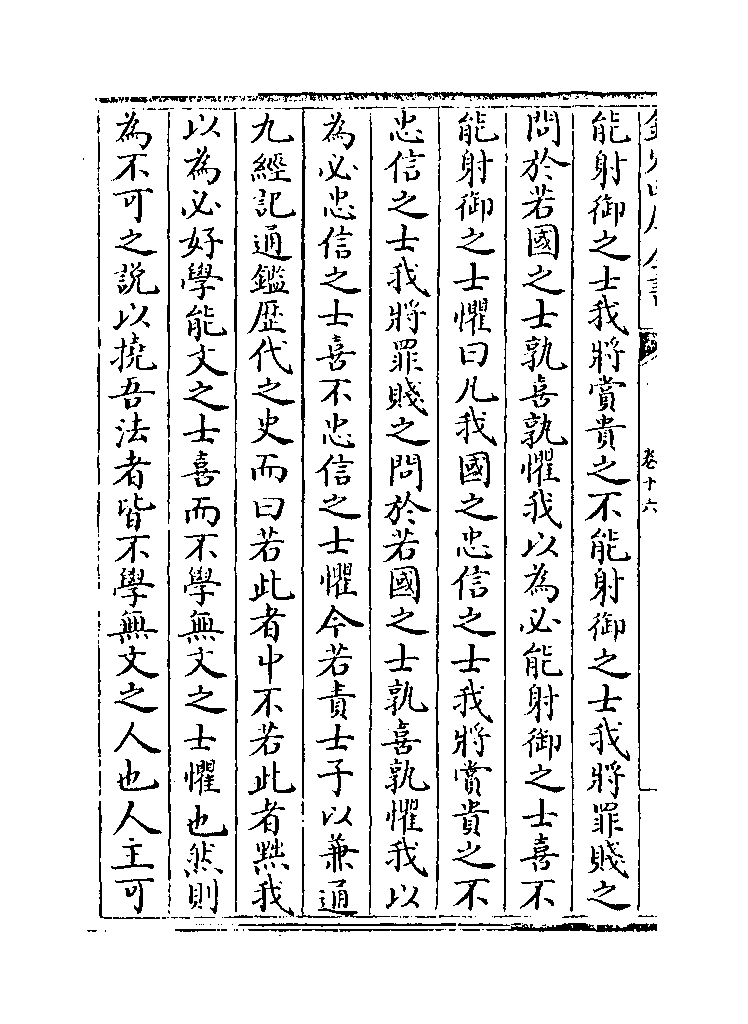 卷十六
能射御之士我將賞貴之不能射御之士我將罪賤之
問於若國之士孰喜孰懼我以為必能射御之士喜不
能射御之士懼曰凡我國之忠信之士我將賞貴之不
忠信之士我將罪賤之問於若國之士孰喜孰懼我以
為必忠信之士喜不忠信之士懼今若責士子以兼通
九經記通鑑歴代之史而曰若此者中不若此者黜我
以為必好學能文之士喜而不學無文之士懼也然則
為不可之說以撓吾法者皆不學無文之人也人主可